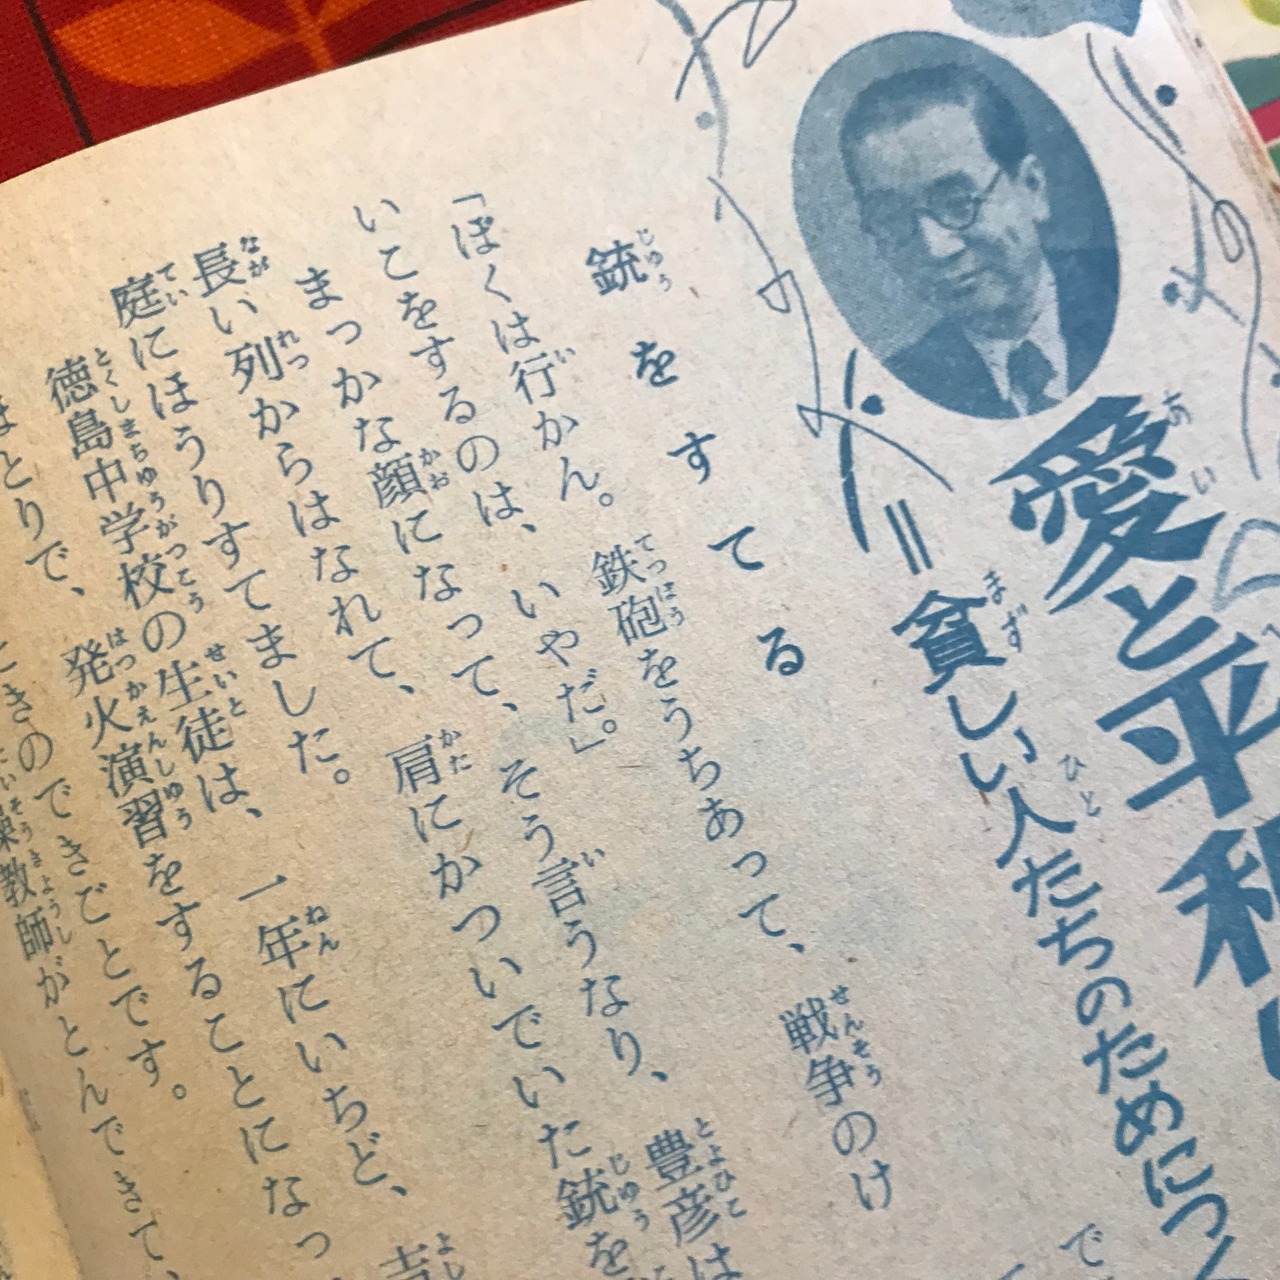 愛と平和
=貧しい人たちのために
銃をすてる
「ぼくは行かん。鉄砲をうちあって、戦争のけ
いこをするのは、いやだ。」
まっかな顔になって、そう言うなり、豊彦は
長い列からはなれて、肩にかついでいた銃を
庭にほうりすてました。
徳島中学校の生徒は、一年にいちど、
発火演習をすることになっ
ときのできごとです。
教師がとんできて、